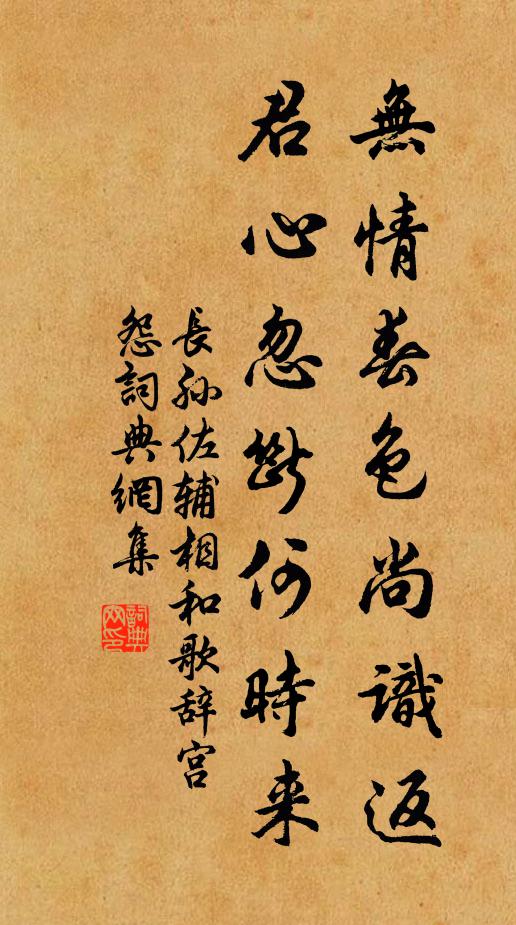 無情春色尚識返
君心忽斷何時来
長孙佐辅相和歌辞宫
怨詞典網集
詞典
网印